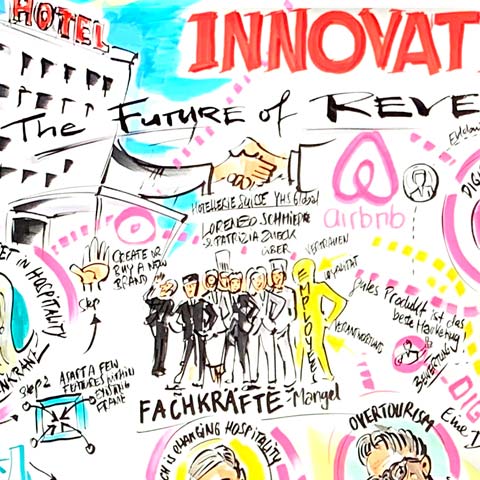 HOTEL
INNOVAT
The FUTURE of REVE
HOTELLERIE SUISSE YHS Global
LORENZO SCHMIED
& PATRIZIA
ÜBER
airbnb
DIG
CREATE OR
BUY A NEW
BRAND
Step
VERTRAUEN
LOYALITÄT
VERANTWORTUNG
EMPLOYEES
gutes Produkt ist das
beste Marketing!
BEWERTUNG
ET IN HOSPITALITY
NKRANZ
Step 2
ADAPT A FEW
FEATURES WITHIN
EXISTING
FRAME
FACHKRÄFTE-Mangel
CH IS CHANGING HOSPITALITY
OVERTOURISM
DIG
Eine